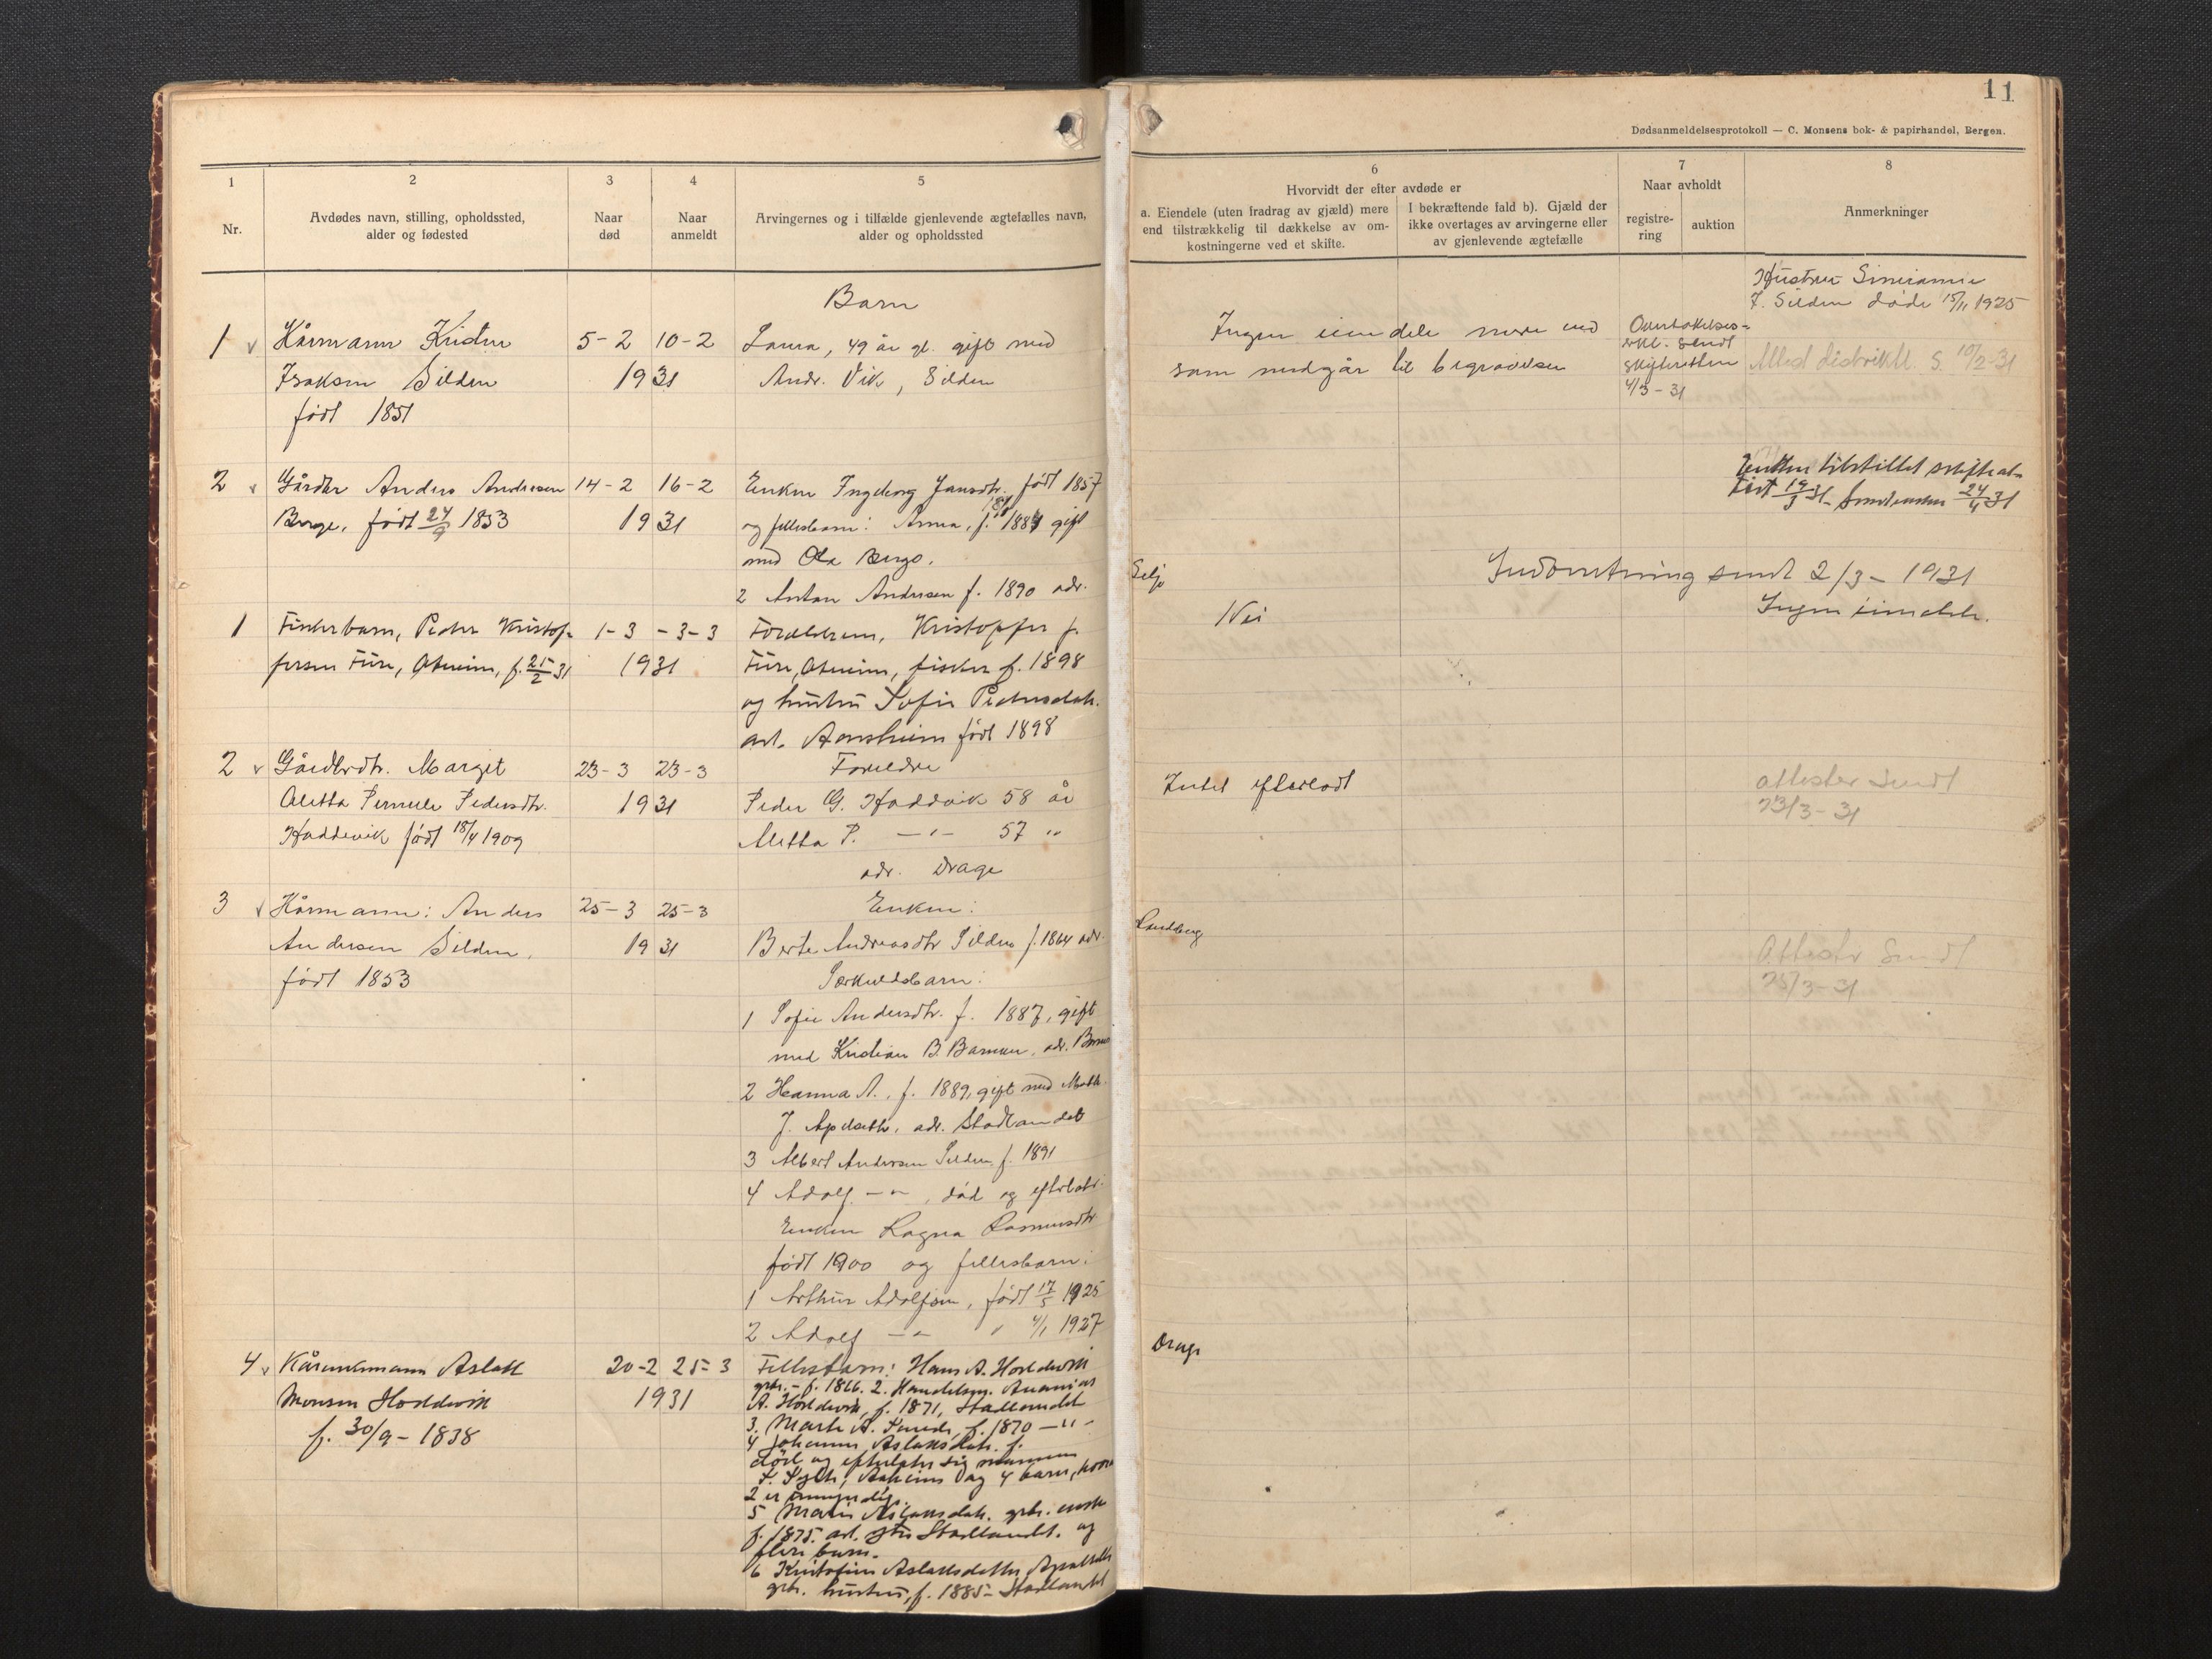 11
Dødsanmeldelsesprotokoll — C. Monsens bok- & papirhandel, Bergen.
1
Nr.
2
Avdødes navn, stilling, opholdssted,
alder og fødested
3
Naar
død
4
Naar
anmeldt
5
Arvingernes og i tilfælde gjenlevende ægtefælles navn,
alder og opholdssted
6
Hvorvidt der efter avdøde er
a. Eiendele (uten fradrag av gjæld) mere
end tilstrækkelig til dækkelse av om-
kostningerne ved et skifte.
I bekræftende fald b). Gjæld der
ikke overtages av arvingerne eller
av gjenlevende ægtefælle
7
Naar avholdt
registre-
ring
auktion
8
Anmerkninger
Barn
1 Kårmann 5-2 10-2 Laura, 49 år gl. gift med
Isaksen Silden 1931 Andr. Vik, Silden
født 1851
Ingen eiendele mere end
som medgår til begravelsen
skifteretten
4/3-31
Hustru
J. Silden døde 15/11 1925
Med distriktl. S. 10/2-31
2 Gårdbr Anders Andresen 14-2 16-2 Enken Ingeborg Jansdtr. født 1857
Berge, født 24/9 1853 1931 og fellesbarn: Anna, f. gift
med Ola Berge.
2 Anton Andresen f. 1890 adr. Selje
Enken tilstillet skifteat-
test 19/3 31 24/4 31
Indberetning sendt 2/3-1931
1 Fiskerbarn, Peder Kristof- 1-3 -3-3 Foreldrene, Kristoffer P.
fersen Fure, Åheim, f. 25/2 31 1931 Fure, Åheim, fisker f. 1898
og hustru Sofie Pedersdatr.
adr. født 1898
Nei
Ingen eiendele.
2 Gårdbrdtr. Margit 23-3 23-3 Foreldre
Aletta Pernele Pedersdtr. 1931 Peder G. Hoddevik 58 år
Hoddevik født 18/4 1909 Aletta P. —"— 57 "
adr. Drage
Intet efterladt
attester sendt
23/3-31
3 Kårmann: Anders 25-3 25-3 Enken:
Andersen Silden, 1931 Berte Andreasdtr Silden f. 1864 adr.
født 1853 Særkuldsbarn:
1 Sofie Andersdtr. f. 1887, gift
med Kristian B. Barmen, adr.
2 Hanna A., f. 1889, gift med Math.
J. Apelseth, adr. Stadlandet
3 Albert Andersen Silden, f. 1891
4 Adolf —"—, død og efterlatt:
Enken Ragna Rasmusdtr.
født 1900 og fellesbarn:
1 Arthur Adolfsen, født 17/5 1925
2 Adolf —"— " 4/1 1927
Attester sendt
25/3-31
4 Kårenkemann Aslak 20-2 25-3 Fellesbarn: Hans A. Hoddevik
Monsen Hoddevik 1931 grbr. - f. 1866. 2. Handelsm. Ananias
f. 30/9-1838 A. Hoddevik, f. 1871, Stadlandet
3. Marte A. f. 1870 —"—
4 Johanne Aslaksdatr. f.
død og efterlater sig mannen
og 4 barn, hvorav
2 er umyndige.
5 Marie Aslaksdatr. grbr. enke
f. 1875. adr. Stadlandet. og
flere barn.
6 Kristofine Aslaksdatter
grbr. hustru, f. 1885- Stadlandet
Drage